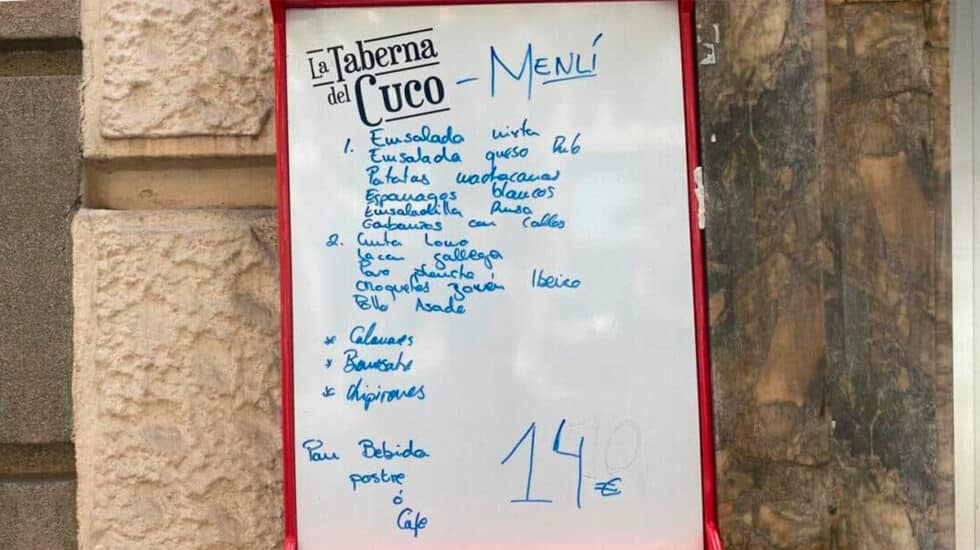 La Taberna
del Cuco
- MENÚ
1. Ensalada mixta
Ensalada queso Rub
Patatas machacanas
Esparragos blancos
Ensaladilla Rusa
Garbanzos con Callos
2. Cinta Lomo
Lacon gallega
Pavo plancha
Croquetas Jamón Iberico
Pollo Asado
* Calamares
*
* Chipirones
Pan Bebida
postre
ó
Cafe
14 €